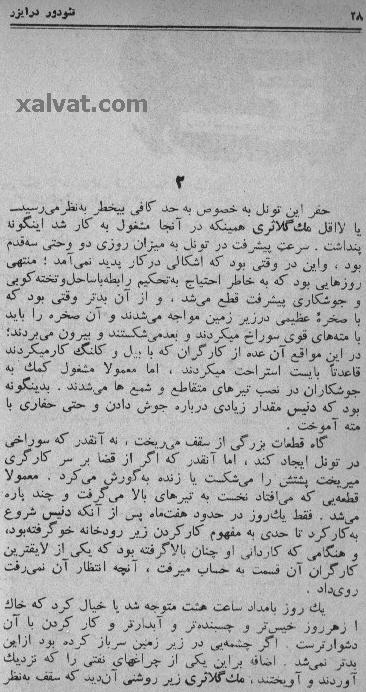 ۲۸ تئودور درایزر
xalvat.com
۲
حفر این تونل به خصوص به حد کافی بیخطر به‌نظر می‌رسید ــ
یا لااقل مك‌گلاثری همینکه در آنجا مشغول به کار شد اینگونه
پنداشت . سرعت پیشرفت در تونل به میزان روزی دو وحتی سه‌قدم
بود ، واین در وقتی بود که اشکالی درکار پدید نمی‌آمد ؛ منتهی
روزهایی بود که به خاطر احتیاج به‌تحکیم رابطه‌باساحل‌وتخته‌کوبی
و جوشکاری پیشرفت قطع می‌شد ، و از آن بدتر وقتی بود که
با صخرهٔ عظیمی درزیر زمین مواجه می‌شدند و آن صخره را باید
با مته‌های قوی سوراخ میکردند و بعدمی‌شکستند و بیرون می‌بردند؛
در این مواقع آن عده از کارگران که با بیل و کلنگ کارمیکردند
قاعدتاً بایست استراحت میکردند ، اما معمولا مشغول کمك به
جوشکاران در نصب تیرهای متقاطع و شمع ها می‌شدند . بدینگونه
بود که دنیس مقدار زیادی درباره جوش دادن و حتی حفاری با
مته آموخت .
گاه قطعات بزرگی از سقف می‌ریخت ، نه آنقدر که سوراخی
در تونل ایجاد کند ، اما آنقدر که اگر از قضا بر سر کارگری
میریخت پشتش را می‌شکست یا زنده به‌گورش می‌کرد . معمولا
قطعه‌یی که می‌افتاد نخست به تیرهای بالا می‌گرفت و چند پاره
می‌شد . فقط یك‌روز در حدود هفت‌ماه پس از آنکه دنیس شروع
به‌کارکرد تا حدی به مفهوم کارکردن زیر رودخانه خوگرفته‌بود،
و هنگامی که کاردانی او چنان بالاگرفته بود که یکی از لایقترین
کارگران آن قسمت به حساب میرفت ، آنچه انتظار آن نمی‌رفت
روی‌داد .
یك روز بامداد ساعت هشت متوجه شد یا خیال کرد که خاك
ا زهرروز خیس‌تر و چسبنده‌تر و آبدارتر و کار کردن با آن
دشوارترست . اگر چشمه‌یی در زیر زمین سرباز کرده بود ازاین
بدتر نمی‌شد . اضافه براین یکی از چراغهای نفتی را که نزدیك
آوردند و آویختند ، مك‌گلاثری زیر روشنی آن‌دید که سقف به‌نظر